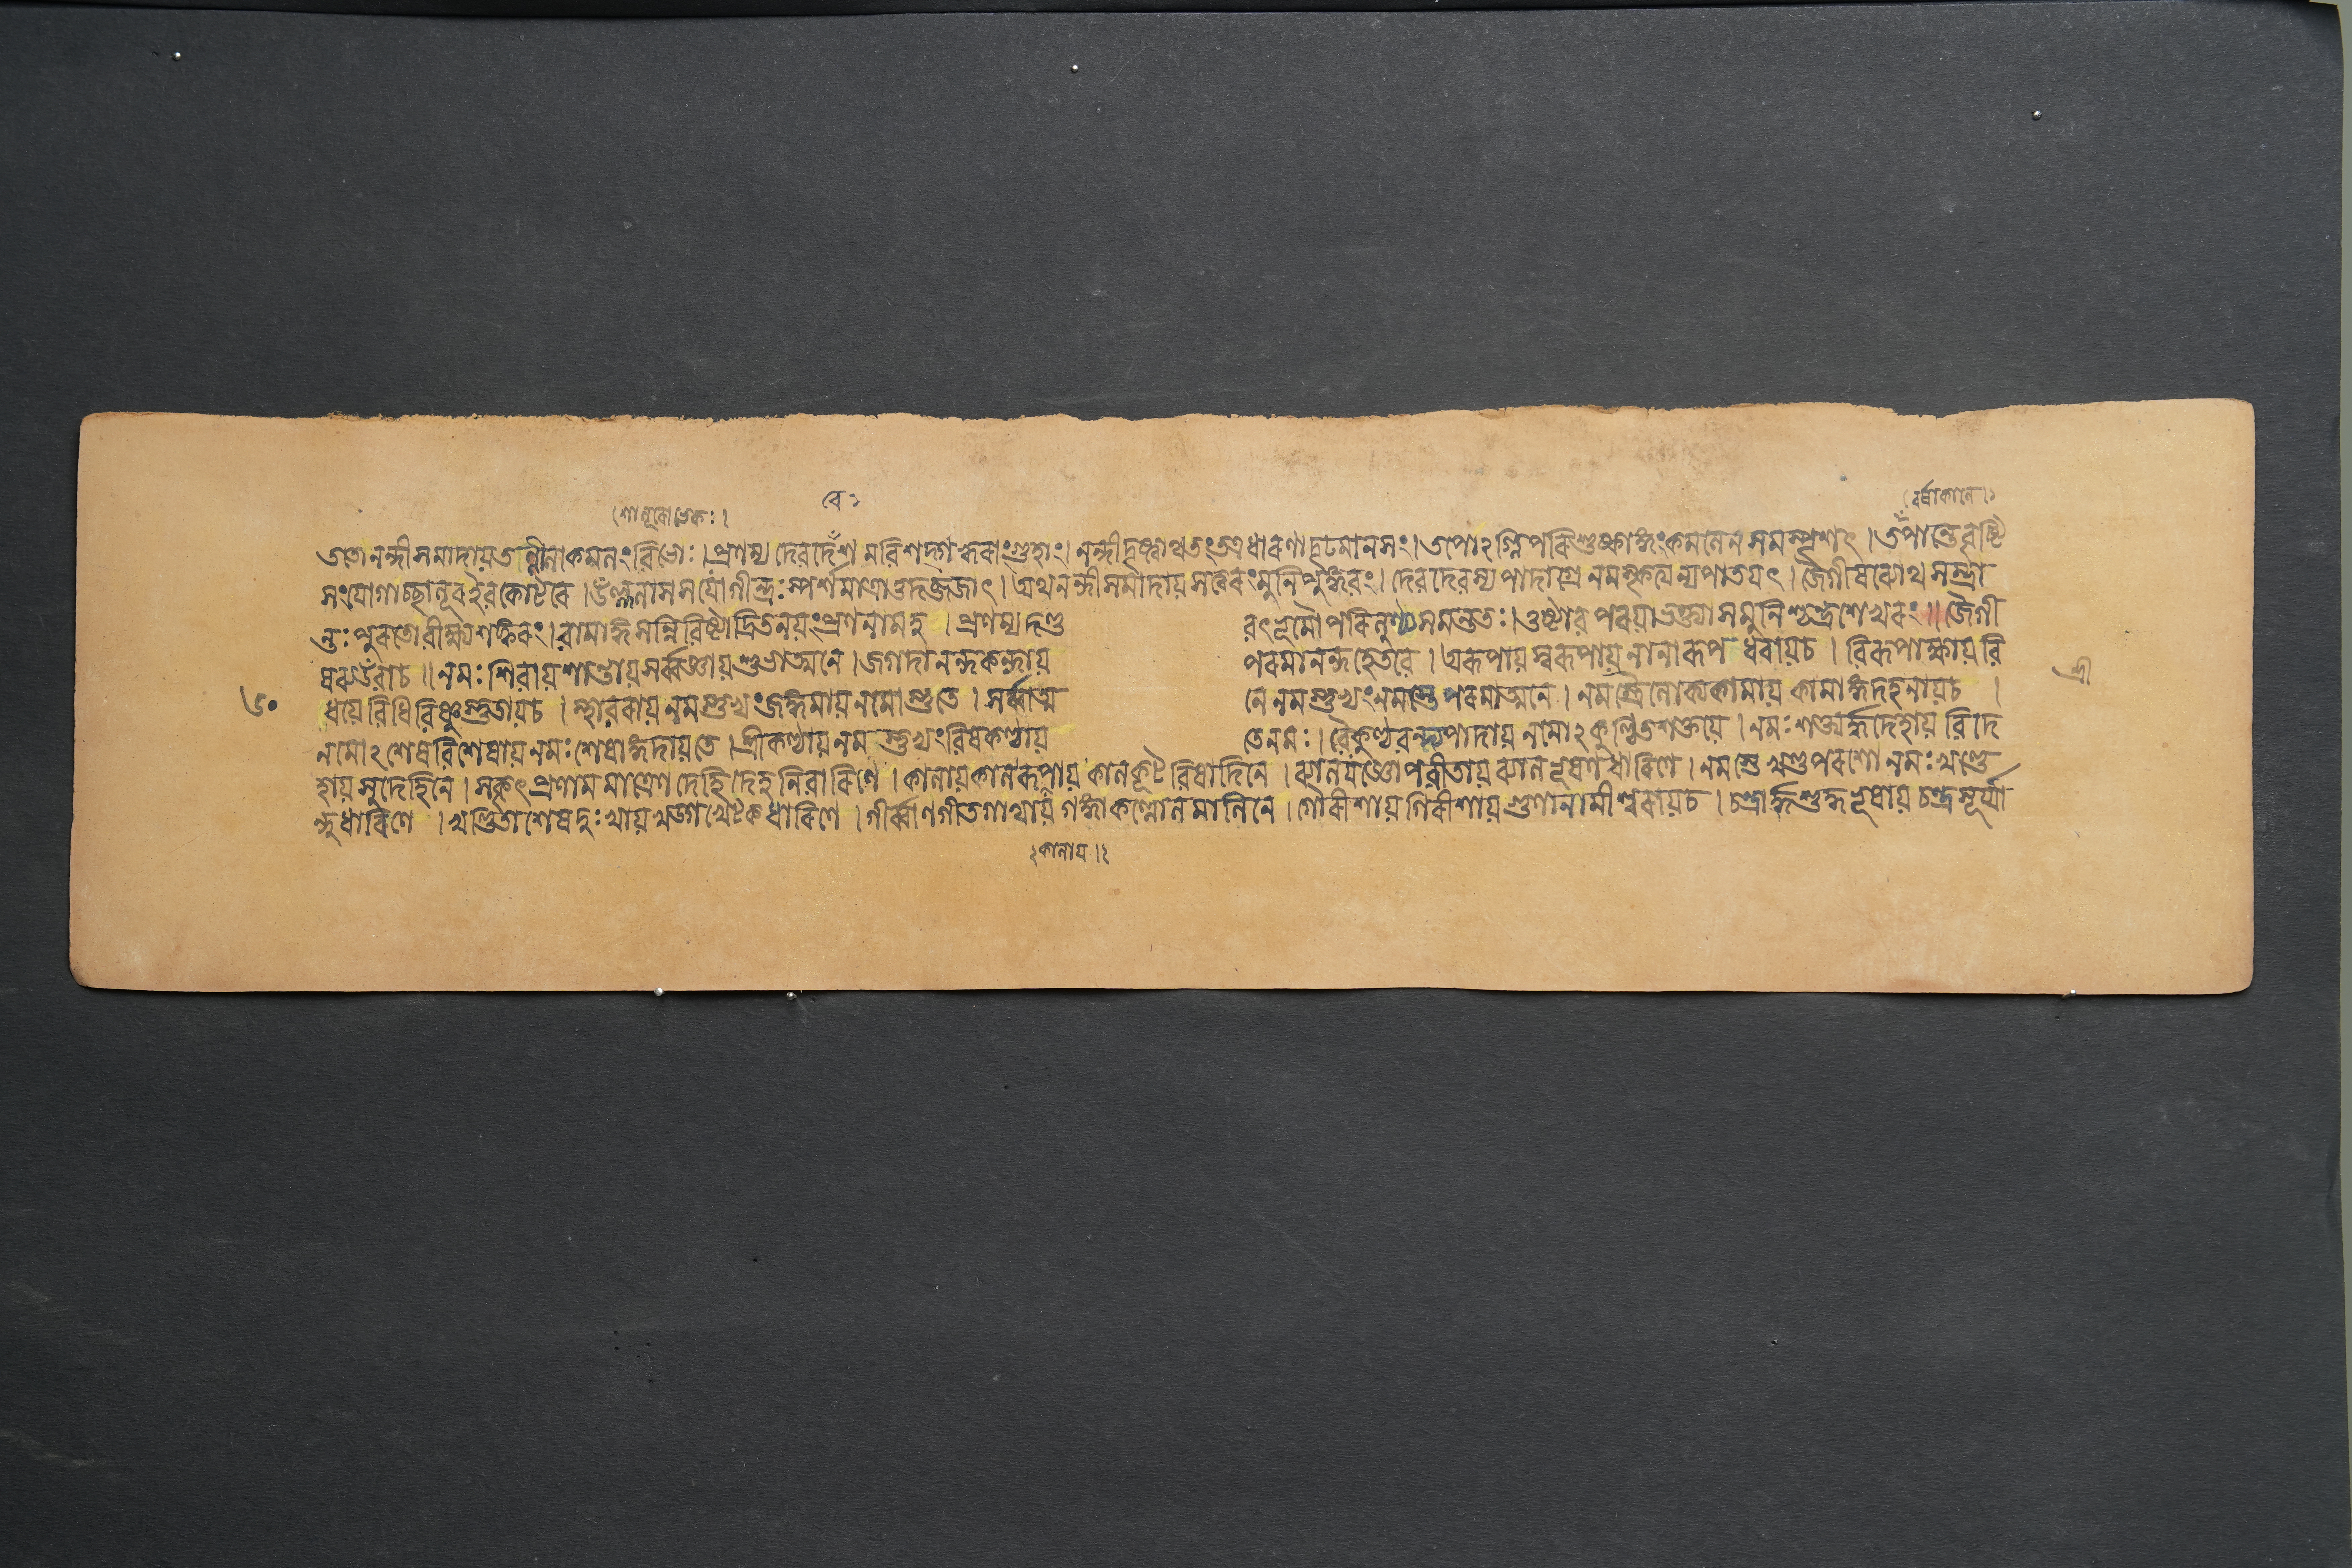 শালূরোভেকঃ। বে২ বর্ষাকালে।২
ততোনন্দীসমাদায়তল্লীলাকমলংবিভোঃ।প্রণম্য দেবদেঁশমবিশদ্গহ্বরাংগুহাং।নন্দীদৃষ্ট্বাথতংতত্রধারণাদৃঢমানসং।তপোঽগ্নিপরিশুষ্কাঙ্গংকমলেনসমস্পৃশৎ।তপান্তেবৃষ্টি
সংযোগাচ্ছালূরইবকোটরে।উল্ললাসসযোগীন্দ্রঃস্পর্শমাত্রাত্তদব্জজাৎ।অথনন্দীসমাদায়সত্বরংমুনিপুঙ্গবং।দেবদেবস্যপাদাগ্রেনমস্কৃত্যন্যপাতয়ৎ।জৈগীষব্যোথসম্ভ্রা
ন্তঃপুরতোবীক্ষ্যশঙ্করং।বামাঙ্গসন্নিবিষ্টাদ্রিতনয়ংপ্রণনামহ।প্রণম্যদণ্ড বৎভূমৌপরিলুঠ্যসমন্ততঃ।তুষ্টাবপরয়াভক্ত্যাসমুনিশ্চন্দ্রশেখরং॥জৈগী
ষব্যউবাচ॥নমঃশিবায়শান্তায়সর্ব্বজ্ঞায়শুভাত্মনে।জগদানন্দকন্দায় পরমানন্দহেতবে।অরূপায়স্বরূপায়নানারূপধরায়চ।বিরূপাক্ষায়বি শ্রী
৬০ ধয়েবিধিবিষ্ণুস্তুতায়চ।স্থাবরায়নমস্তুভ্যংজঙ্গমায়নমোস্তুতে।সর্ব্বাত্ম নেনমস্তুভ্যংনমস্তেপরমাত্মনে।নমস্ত্রৈলোক্যকামায়কামাঙ্গদহনায়চ।
নমোঽশেষবিশেষায়নমঃশেষাঙ্গদায়তে।শ্রীকণ্ঠায়নমস্তুভ্যংবিষকণ্ঠায় তেনমঃ।বৈকুণ্ঠবন্দ্যপাদায়নমোঽকুণ্ঠিতশক্তয়ে।নমঃশক্ত্যর্দ্ধদেহায়বিদে
হায়সুদেহিনে।সকৃৎপ্রণামমাত্রেণদেহিদেহনিবারিণে।কালায়কালরূপায়কালকূটবিষাদিনে।ব্যালযজ্ঞোপবীতায়ব্যালভূষণধারিণে।নমস্তেখণ্ডপরশোনমঃখণ্ডে
ন্দুধারিণে।খণ্ডিতাশেষদুঃখায়খড্গখেটকধারিণে।গীর্ব্বাণগীতগাথায়গঙ্গাকল্লোলমালিনে।গৌরীশায়গিরীশায়গুণানামীশ্বরায়চ।চন্দ্রার্দ্ধশুদ্ধভূষায়চন্দ্রসূর্য্যা
২কালায়।২